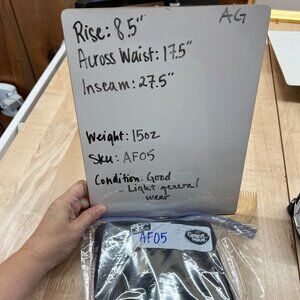 AG
Rise: 8.5"
Across Waist: 17.5"
Inseam: 27.5"
Weight: 15oz
SKU: AF05
Condition: Good
- Light general
wear
AF05
Great Value